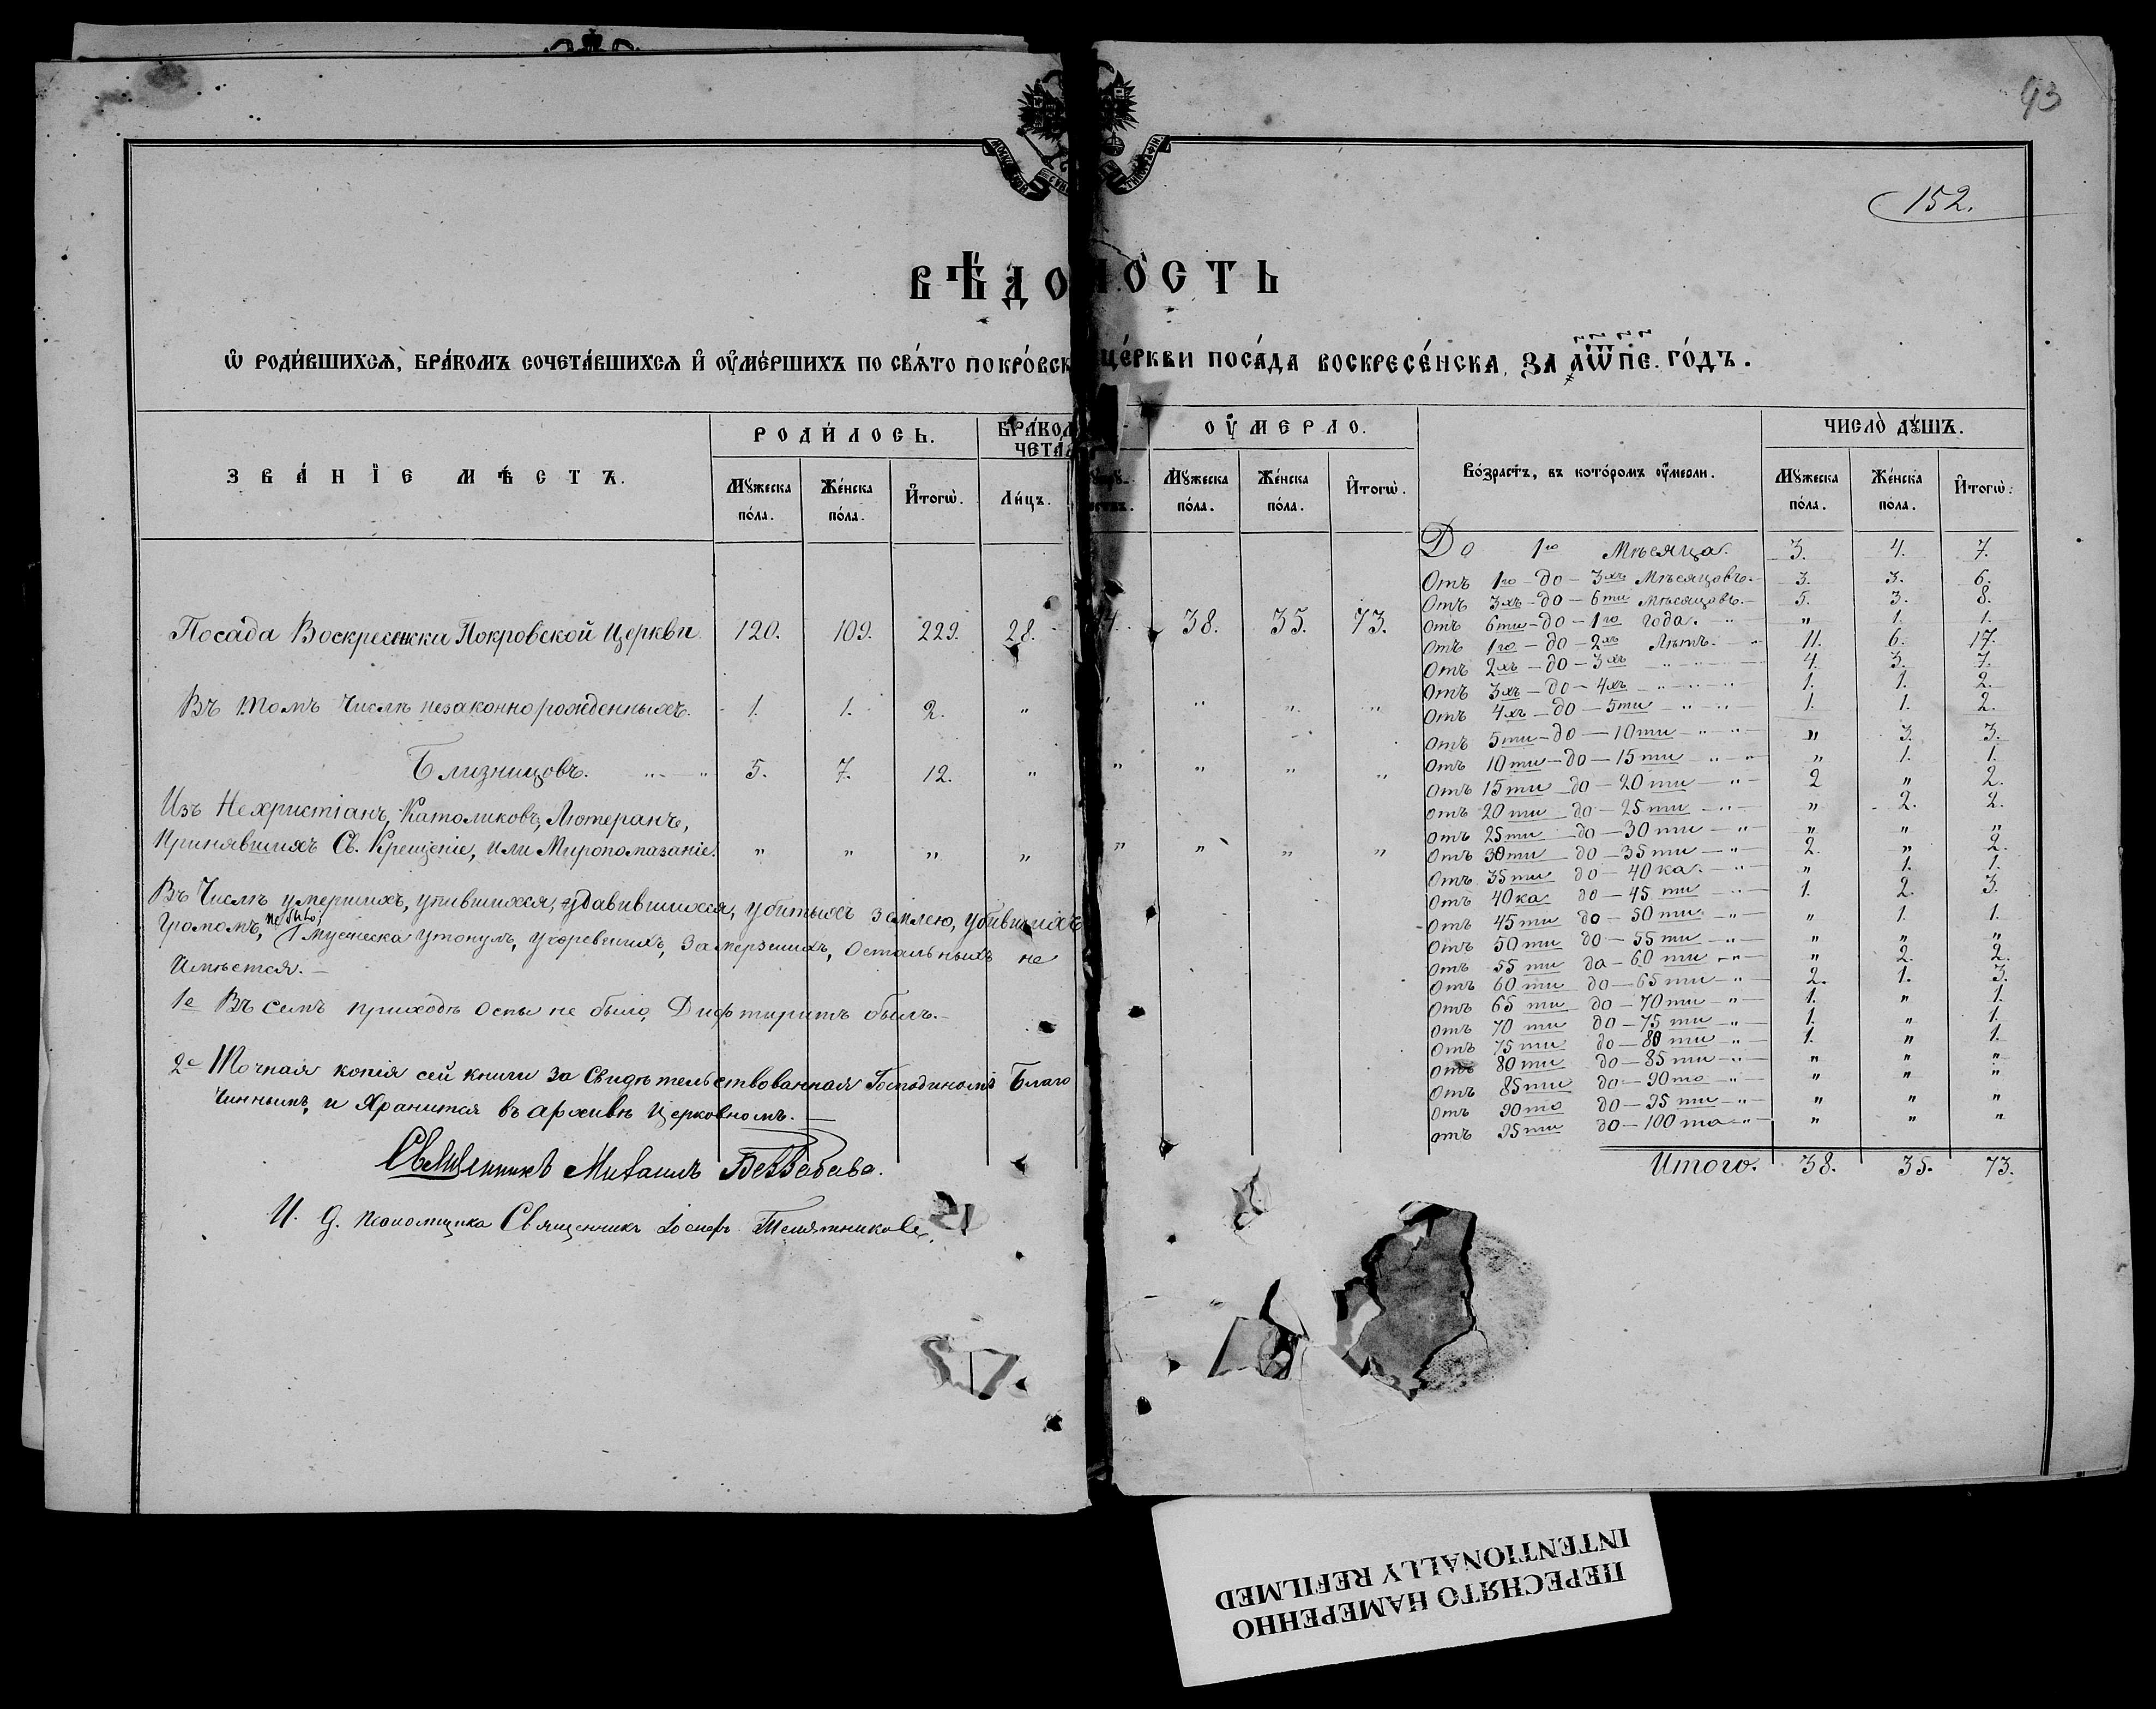 93
152.
ВѢДОМОСТЬ
Ѡ РОДИ́ВШИХСЯ, БРА́КОМЪ СОЧЕТА́ВШИХСЯ И ОУМЕ́РШИХЪ ПО СВЯ́ТО ПОКРО́ВСК ЦЕ́РКВИ ПОСА́ДА ВОСКРЕСЕ́НСКА, ЗА ҂АѾПЕ. ГО́ДЪ.
ЗВА́НІЕ МѢСТЪ.
РОДИ́ЛОСЬ.
Му́жеска по́ла. Же́нска по́ла. Итогѡ̀.
БРА́КОМ ЧЕТА́
Ли́цъ.
ОУ́МЕРЛО.
Му́жеска по́ла. Же́нска по́ла. Итогѡ̀.
Во́зрастъ, въ кото́ромъ оу́мерли.
ЧИСЛО̀ ДУ́ШЪ.
Му́жеска по́ла. Же́нска по́ла. Итогѡ̀.
Посада Воскресенска Покровской Церкви. 120. 109. 229. 28. 38. 35. 73.
Въ томъ Числѣ незаконно рожденныхъ. 1. 1. 2. " " " " "
Близнецовъ. " — " 5. 7. 12. " " " " "
Изъ Нехристіанъ, Католиковъ, Лютеранъ,
Принявшихъ Св. Крещеніе, или Миропомазаніе. " " " " " " " "
Въ Числѣ умершихъ, упившихся, удавившихся, убитыхъ землею, убившихъ
громомъ, не было, 1 мужеска утонулъ, угоревшихъ, замерзшихъ, остальныхъ не
Имѣется. —
1е Въ семъ приходѣ оспы не было, Дифтеритъ былъ. —
2е Точная копія сей книги за Свидѣтельствованная Господиномъ Благо
чиннымъ, и Хранится въ архивѣ Церковномъ. —
Священникъ Михаилъ
И. д. Священникъ Іосифъ
До 1го Мѣсяца. 3. 4. 7.
Отъ 1го — до — 3хъ Мѣсяцовъ. — 3. 3. 6.
Отъ 3хъ — до — 6ти Мѣсяцовъ. — 5. 3. 8.
Отъ 6ти — до — 1го года. " — " 1. 1.
Отъ 1го — до — 2хъ Лѣтъ. — 11. 6. 17.
Отъ 2хъ — до — 3хъ — " — " — 4. 3. 7.
Отъ 3хъ — до — 4хъ — " — " — 1. 1. 2.
Отъ 4хъ — до — 5ти — " — " — 1. 1. 2.
Отъ 5ти — до — 10ти — " — " — " 3. 3.
Отъ 10ти — до — 15ти — " — " " 1. 1.
Отъ 15ти — до — 20ти — " — 2 " 2.
Отъ 20ти — до — 25ти — " — " 2. 2.
Отъ 25ти — до — 30ти — " — " " "
Отъ 30ти — до — 35ти — " — 2. " 2.
Отъ 35ти до — 40ка. — " — " 1. 1.
Отъ 40ка до — 45ти — " — 1. 2. 3.
Отъ 45ти до — 50ти — " — " 1. 1.
Отъ 50ти до — 55ти — " — " " "
Отъ 55ти до — 60ти — " — " 2. 2.
Отъ 60ти до — 65ти — " — 2. 1. 3.
Отъ 65ти до — 70ти — " — 1. " 1.
Отъ 70ти до — 75ти — " — 1. " 1.
Отъ 75ти до — 80ти — " — 1. " 1.
Отъ 80ти до — 85ти — " — " " "
Отъ 85ти до — 90то — " — " " "
Отъ 90то до — 95ти — " — " " "
Отъ 95ти до — 100та — " — " " "
Итого. 38. 35. 73.
ПЕРЕСНЯТО НАМЕРЕННО
INTENTIONALLY REFILMED